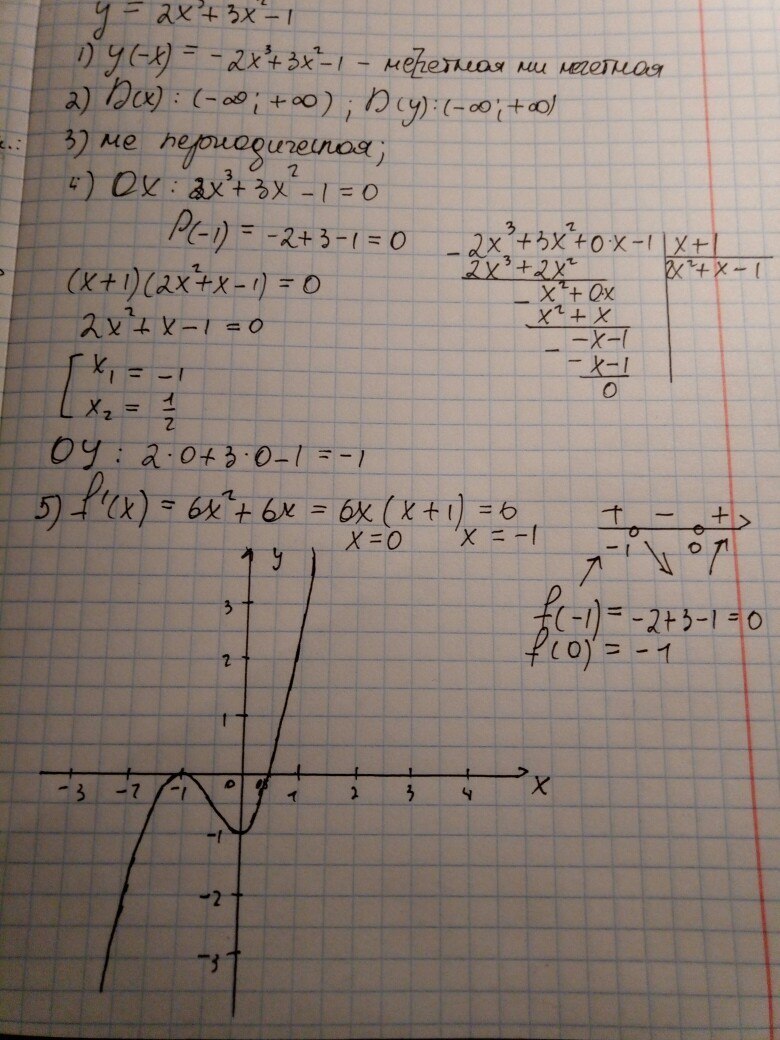 y = 2x³+3x²-1
1) y(-x) = -2x³+3x²-1 - нечетная ни нечетная
2) D(x) : (-∞; +∞) ; D(y):(-∞; +∞)
3) не периодическая;
4) OX : 2x³+3x²-1=0
P(-1) = -2+3-1=0
(x+1)(2x²+x-1)=0
2x²+x-1=0
x₁ = -1
x₂ = 1/2
2x³+3x²+0·x-1 | x+1
2x³+2x² | 2x²+x-1
- x²+0x
x²+x
- -x-1
-x-1
0
OY : 2·0+3·0-1=-1
5) f'(x) = 6x²+6x = 6x(x+1)=0
x=0 x=-1
+ - +
-1 0
f(-1) = -2+3-1=0
f(0) = -1
y
3
2
1
-3 -2 -1 0 1 2 3 4 x
-1
-2
-3